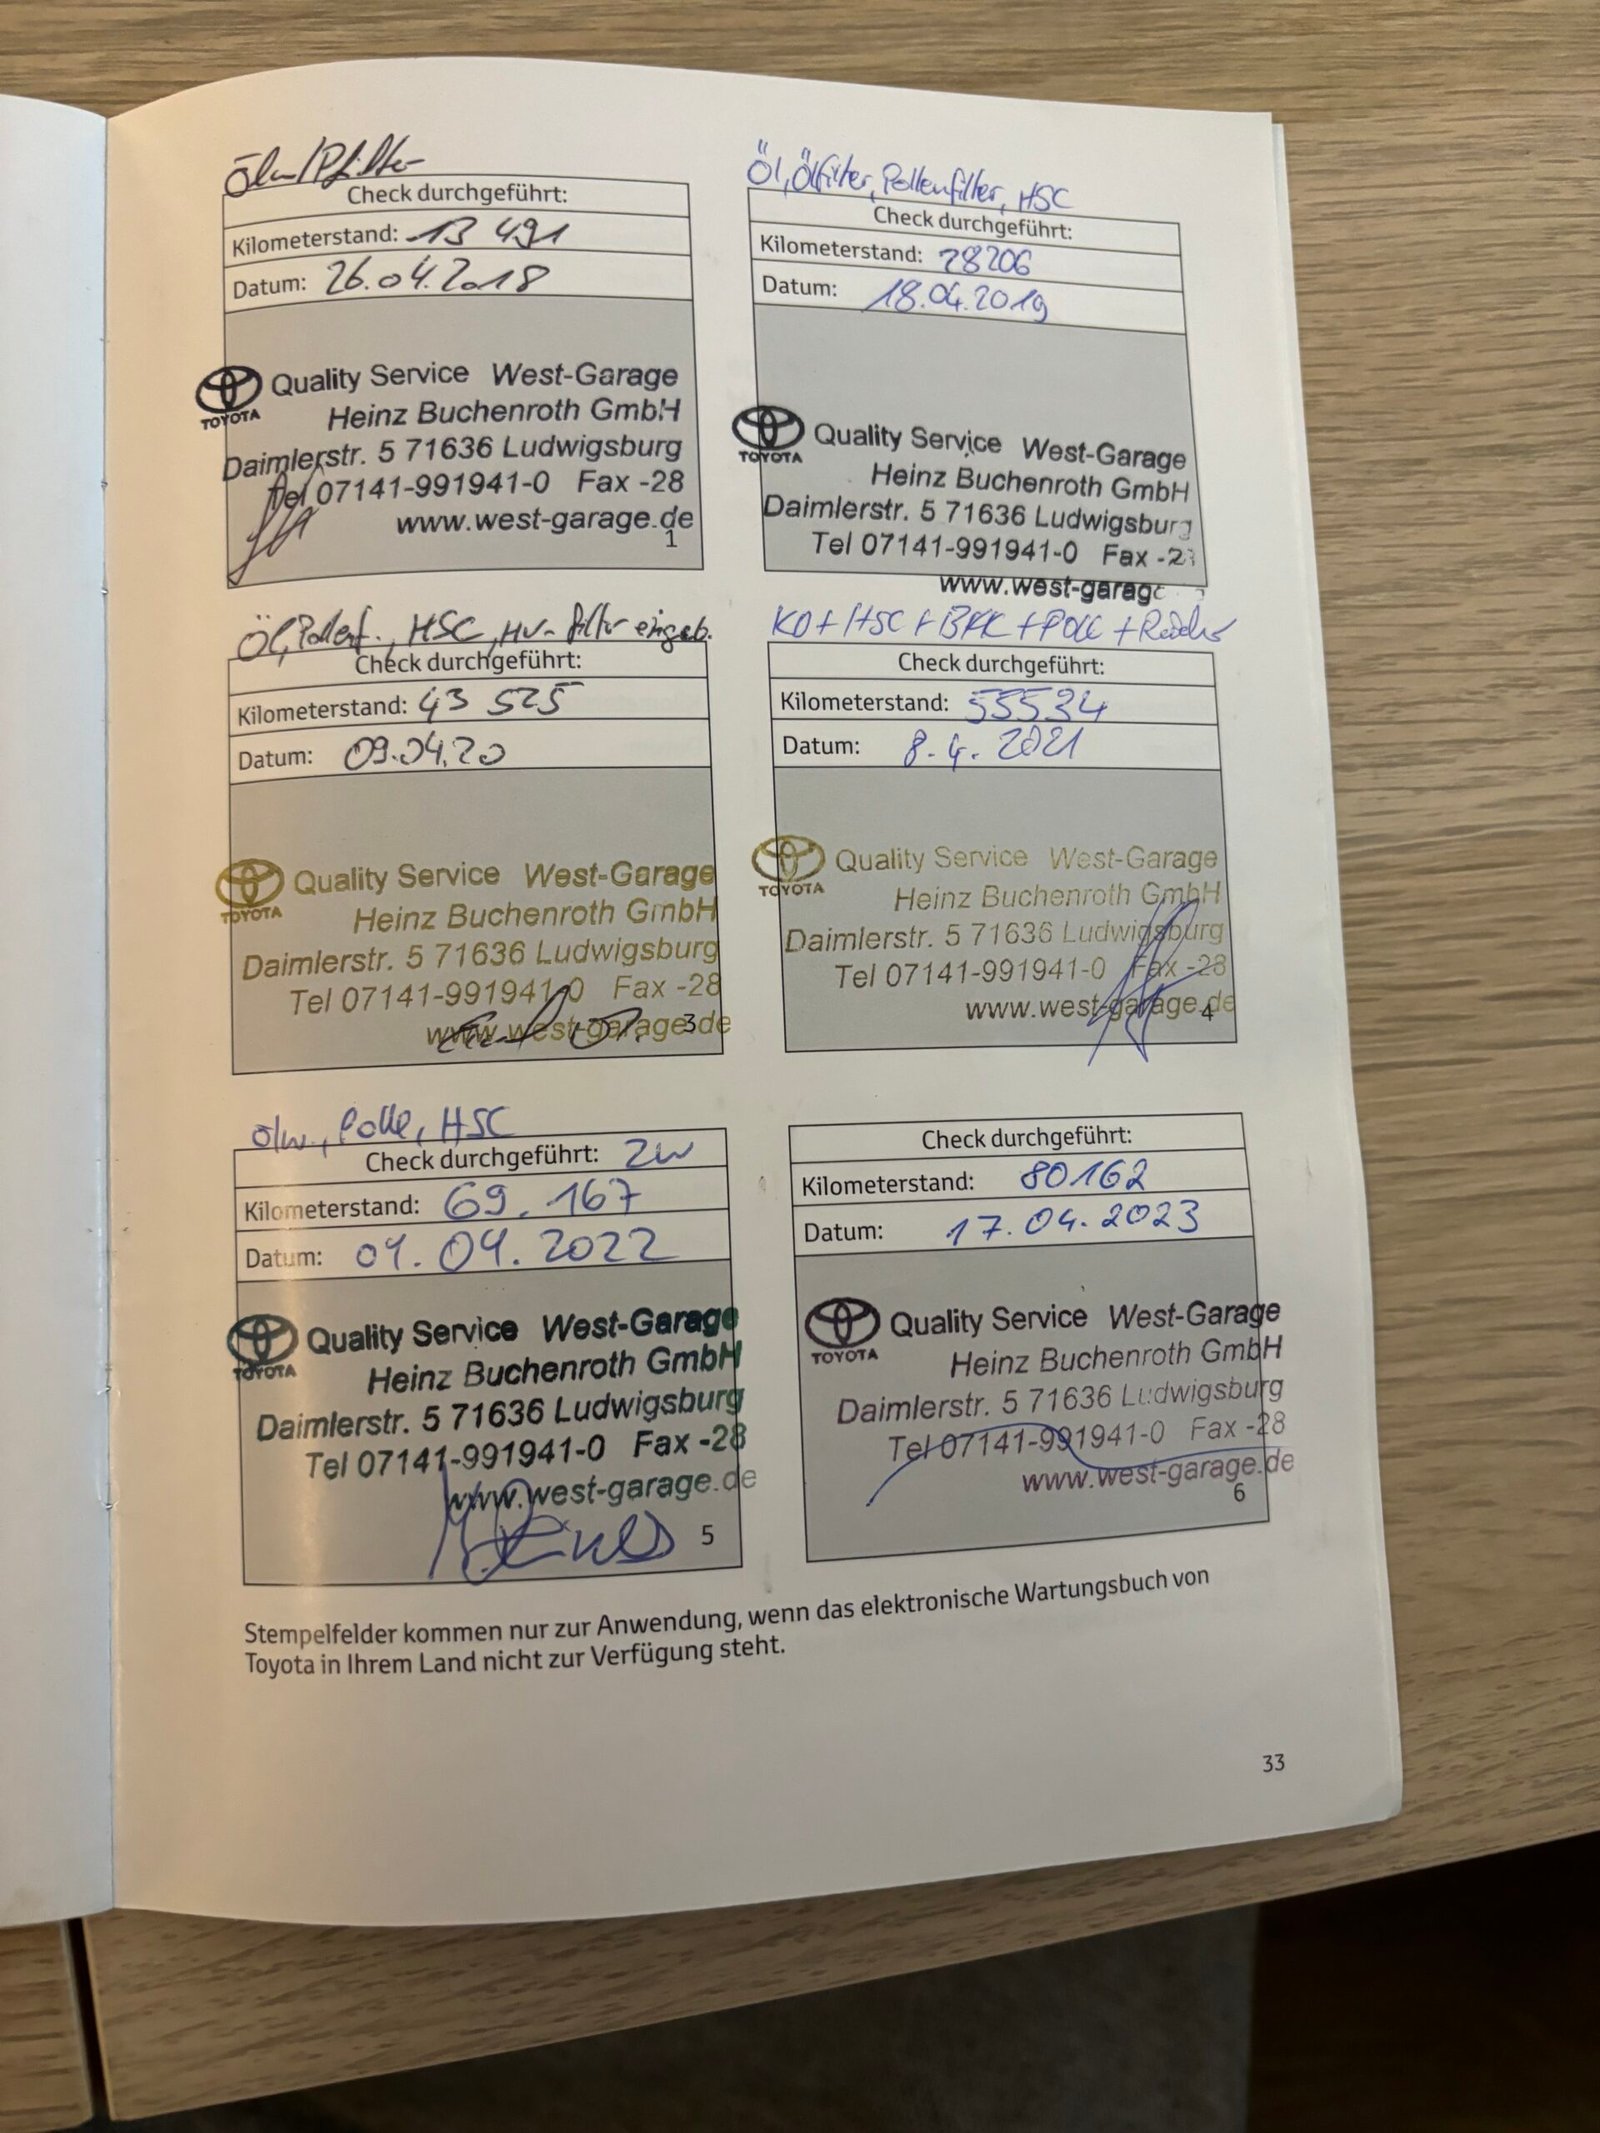 Check durchgeführt:
Kilometerstand: 13 491
Datum: 26.04.2018
TOYOTA
Quality Service West-Garage
Heinz Buchenroth GmbH
Daimlerstr. 5 71636 Ludwigsburg
Tel 07141-991941-0 Fax -28
www.west-garage.de
1
Öl, Ölfilter, Pollenfilter, HSC
Check durchgeführt:
Kilometerstand: 28206
Datum: 18.04.2019
TOYOTA
Quality Service West-Garage
Heinz Buchenroth GmbH
Daimlerstr. 5 71636 Ludwigsburg
Tel 07141-991941-0 Fax -28
www.west-garage
Öl, Pollenf., HSC, HV-filter eingeb.
Check durchgeführt:
Kilometerstand: 43 525
Datum: 09.04.20
TOYOTA
Quality Service West-Garage
Heinz Buchenroth GmbH
Daimlerstr. 5 71636 Ludwigsburg
Tel 07141-991941-0 Fax -28
www.west-garage.de
3
KD + HSC +
Check durchgeführt:
Kilometerstand: 55534
Datum: 8.4.2021
TOYOTA
Quality Service West-Garage
Heinz Buchenroth GmbH
Daimlerstr. 5 71636 Ludwigsburg
Tel 07141-991941-0 Fax -28
www.west-garage.de
4
Ölw., Polle, HSC
Check durchgeführt: ZW
Kilometerstand: 69.167
Datum: 04.2022
TOYOTA
Quality Service West-Garage
Heinz Buchenroth GmbH
Daimlerstr. 5 71636 Ludwigsburg
Tel 07141-991941-0 Fax -28
www.west-garage.de
5
Check durchgeführt:
Kilometerstand: 80162
Datum: 17.04.2023
TOYOTA
Quality Service West-Garage
Heinz Buchenroth GmbH
Daimlerstr. 5 71636 Ludwigsburg
Tel 07141-991941-0 Fax -28
www.west-garage.de
6
Stempelfelder kommen nur zur Anwendung, wenn das elektronische Wartungsbuch von
Toyota in Ihrem Land nicht zur Verfügung steht.
33